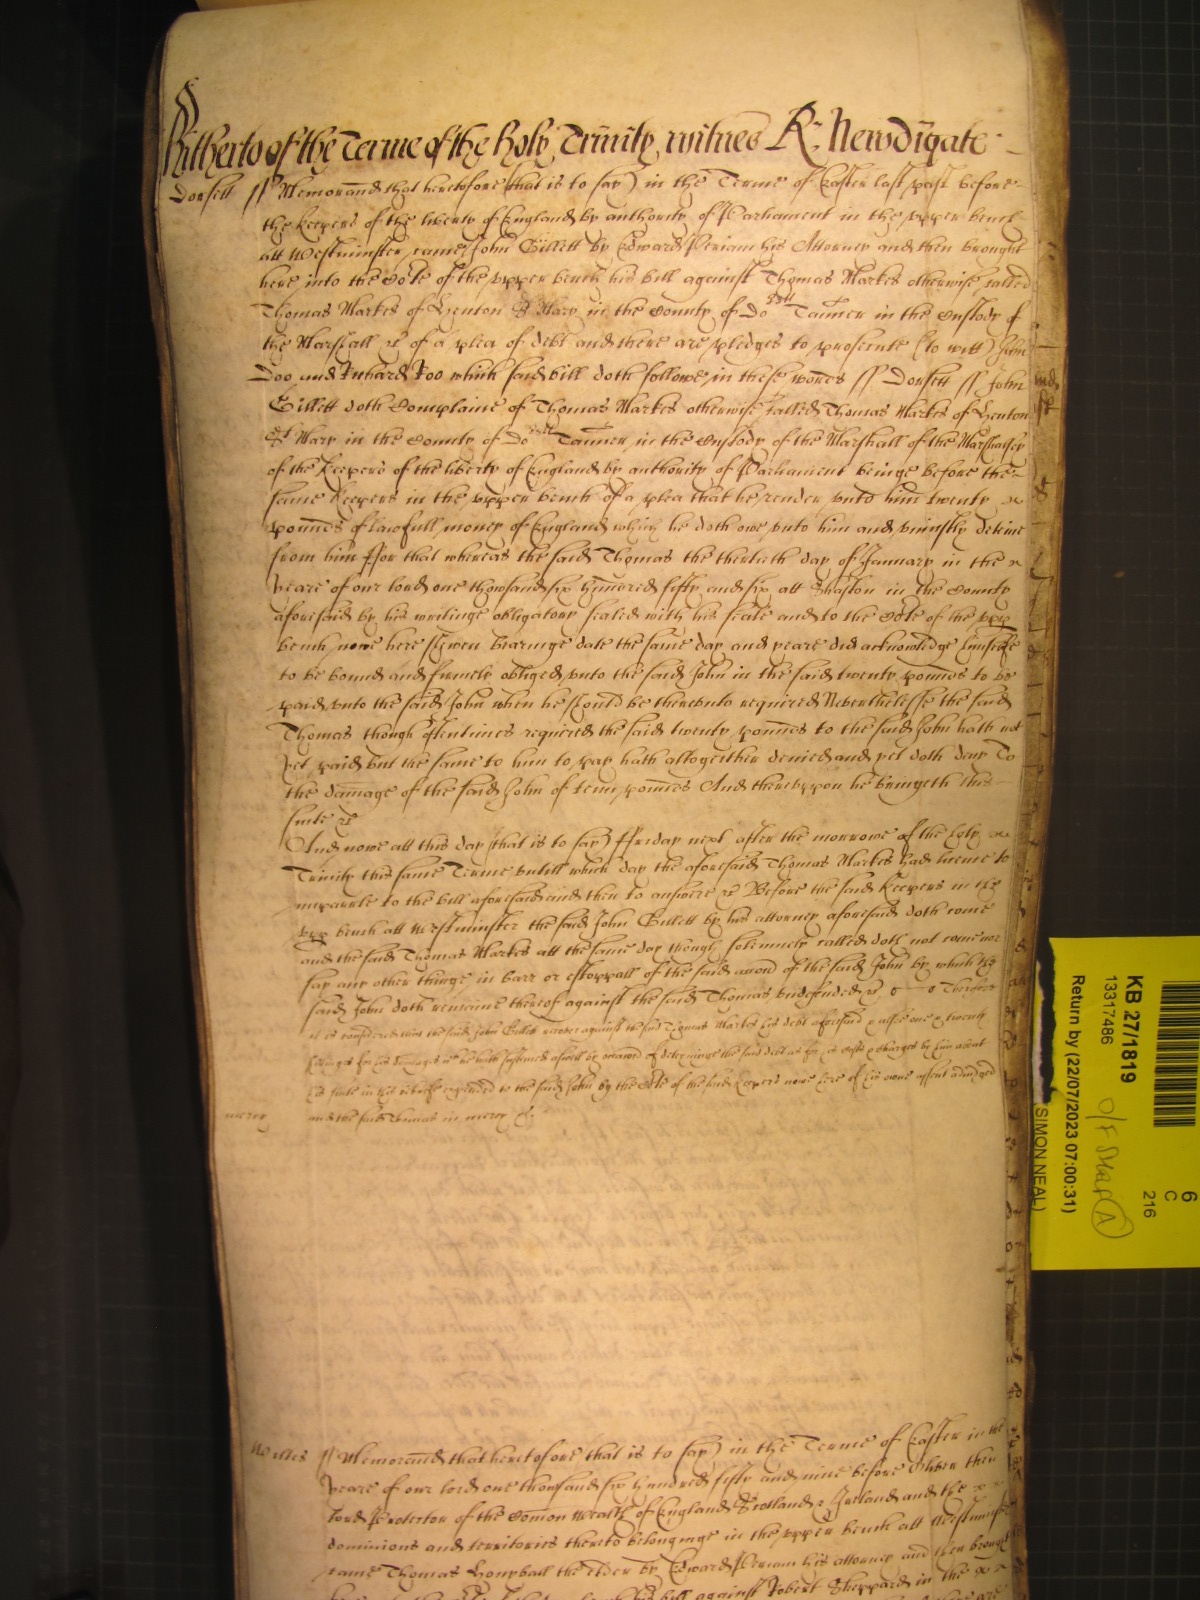 Hitherto of the Terme of the holy Trinity witnes R: Newdigate
Dorsett ss Memorand that heretofore (that is to say) in the Terme of Easter last past before
the keepers of the liberty of England by authority of Parliament in the upper bench
att Westminster came John Gillett by Edward Periam his Attorney and then brought
here into the Cort of the upper bench his bill against Thomas Markes otherwise called
Thomas Markes of Henton St Mary in the County of Dorsett Tanner in the Custody of
the Marshall &c of a plea of debt and there are pledges to prosecute (to witt) John
Doo and Richard Roo which said bill doth followe in these words ss Dorsett ss John
Gillett doth Complaine of Thomas Markes otherwise called Thomas Markes of Henton
St Mary in the County of Dorsett Tanner in the Custody of the Marshall of the Marshalsey
of the keepers of the liberty of England by authority of Parliament beinge before the
same keepers in the upper bench of a plea that he render unto him twenty
pounds of lawfull money of England which he doth owe unto him and uniustly detine
from him ffor that whereas the said Thomas the thirtieth day of January in the
yeare of our lord one thowsand six hundred fifty and six att Shaston in the County
aforesaid by his writinge obligatory sealed with his seale and to the Cort of the upp
bench nowe here shewen bearinge date the same day and yeare did acknowledge himselfe
to be bound and firmely obliged unto the said John in the said twenty pounds to be
paid unto the said John when he should be thereunto required Neverthelesse the said
Thomas though oftentimes required the said twenty pounds to the said John hath not
yet paid but the same to him to pay hath altogeither denied and yet doth deny To
the damage of the said John of tenn pounds And thereuppon he bringeth this
suite &c
And nowe att this day (that is to say) ffriday next after the morrowe of the holy
Trinity this same Terme untill which day the aforesaid Thomas Markes had licence to
imparle to the bill aforesaid and then to answere &c Before the said keepers in the
upp bench att Westminster the said John Gillett by his attorney aforesaid doth come
and the said Thomas Markes att the same day though solemnely called doth not come nor
say any other thinge in barr or estoppall of the said accon of the said John by which the
said John doth remaine thereof against the said Thomas undefended &c Therefore
it is considered that the said John Gillett recover against the said Thomas Markes his debt aforesaid & alsoe one & twenty
shillings for his damages wch he hath susteined aswell by occasion of deteyninge the said debt as for his costs & charges by him about
his suite in this behalfe expended to the said John by the Cort of the said keepers nowe here of his owne assent adiudged
mercy and the said Thomas in mercy &c
ss Memorand that heretofore that is to say) in the Terme of Easter in the
yeare of our lord one thowsand six hundred fifty and nine before Oliver then
lord Protector of the Comon Wealth of England Scotland & Ireland and the
dominions and territories thereto belonginge in the upper bench att Westminster
came Thomas Honyball the elder by Edward Periam his attorney and then brought
his bill against Robert Sheppard in the
KB 27/1819
13317486
Return by (22/07/2023 07:00:31)
(SIMON NEAL)
6
C
216
A